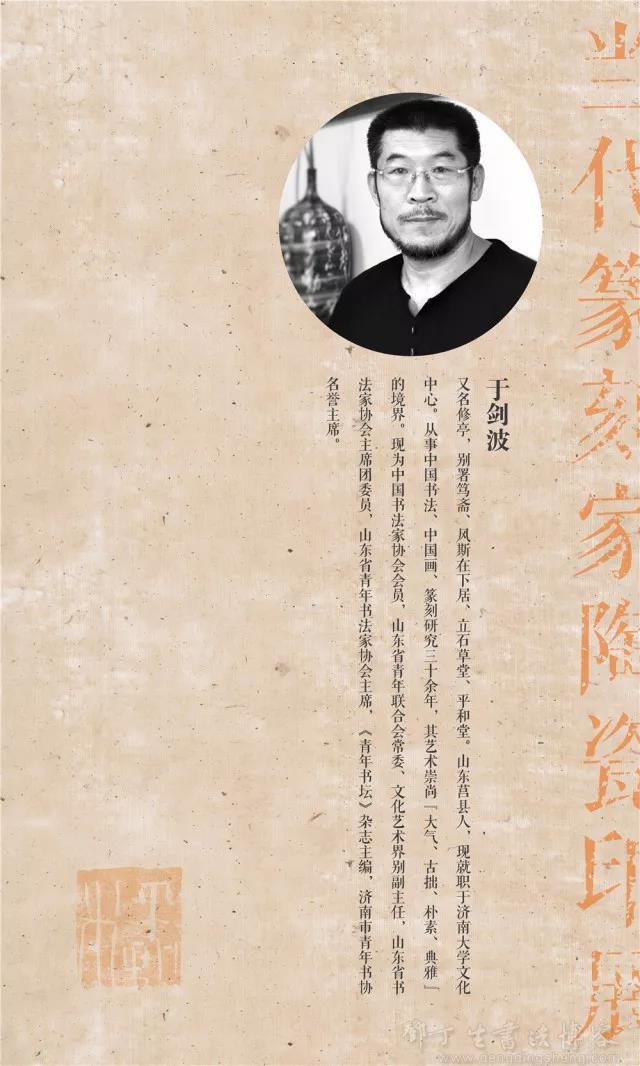 当代篆刻家陶瓷印展
于剑波
又名修亭，别署笃斋、风斯在下居、立石草堂、平和堂。山东莒县人，现就职于济南大学文化
中心。从事中国书法、中国画、篆刻研究三十余年，其艺术崇尚「大气、古拙、朴素、典雅」
的境界。现为中国书法家协会会员，山东省青年联合会常委、文化艺术界别副主任，山东省书
法家协会主席团委员，山东省青年书法家协会主席，《青年书坛》杂志主编，济南市青年书协
名誉主席。
邓丁生书法博客
www.dengdingsheng.com